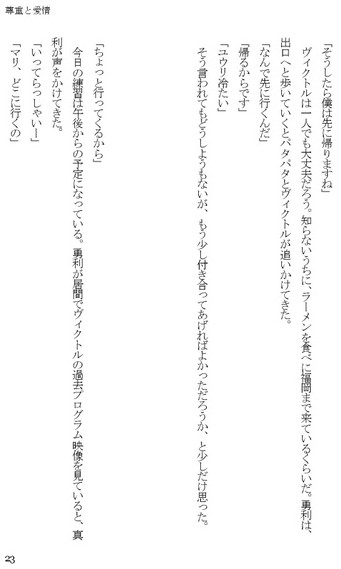 尊重と愛情
「そうしたら僕は先に帰りますね」
　ヴィクトルは一人でも大丈夫だろう。知らないうちに、ラーメンを食べに福岡まで来ているくらいだ。勇利は、
出口へと歩いていくとパタパタとヴィクトルが追いかけてきた。
「なんで先に行くんだ」
「帰るからです」
「ユウリ冷たい」
　そう言われてもどうしようもないが、もう少し付き合ってあげればよかっただろうか、と少しだけ思った。
「ちょっと行ってくるから」
　今日の練習は午後からの予定になっている。勇利が居間でヴィクトルの過去プログラム映像を見ていると、真
利が声をかけてきた。
「いってらっしゃいー」
「マリ、どこに行くの」
23